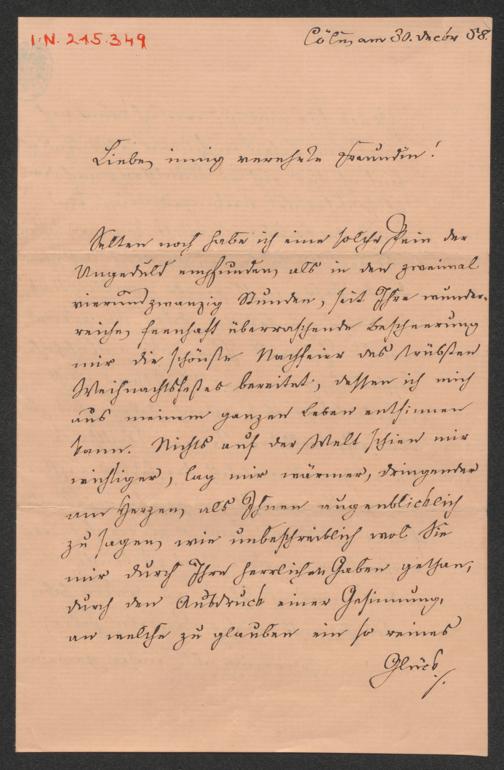 I.N. 215.349
Cöln, am 30. Decbr 88.
Liebe, innig verehrte Freundin!
Selten noch habe ich eine solche Pein der
Ungeduld empfunden, als in den zweimal
vierundzwanzig Stunden, seit Ihre wunder-
reiche, feenhaft überraschende Bescheerung
mir die schönste Nachfeier des trübsten
Weihnachtsfestes bereitet, dessen ich mich
aus meinem ganzen Leben entsinnen
kann. Nichts auf der Welt schien mir
wichtiger, lag mir wärmer, dringender
am Herzen, als Ihnen augenblicklich
zu sagen, wie unbeschreiblich wol Sie
mir durch Ihre herrlichen Gaben gethan,
durch den Ausdruck einer Gesinnung,
an welche zu glauben ein so reines
Glück